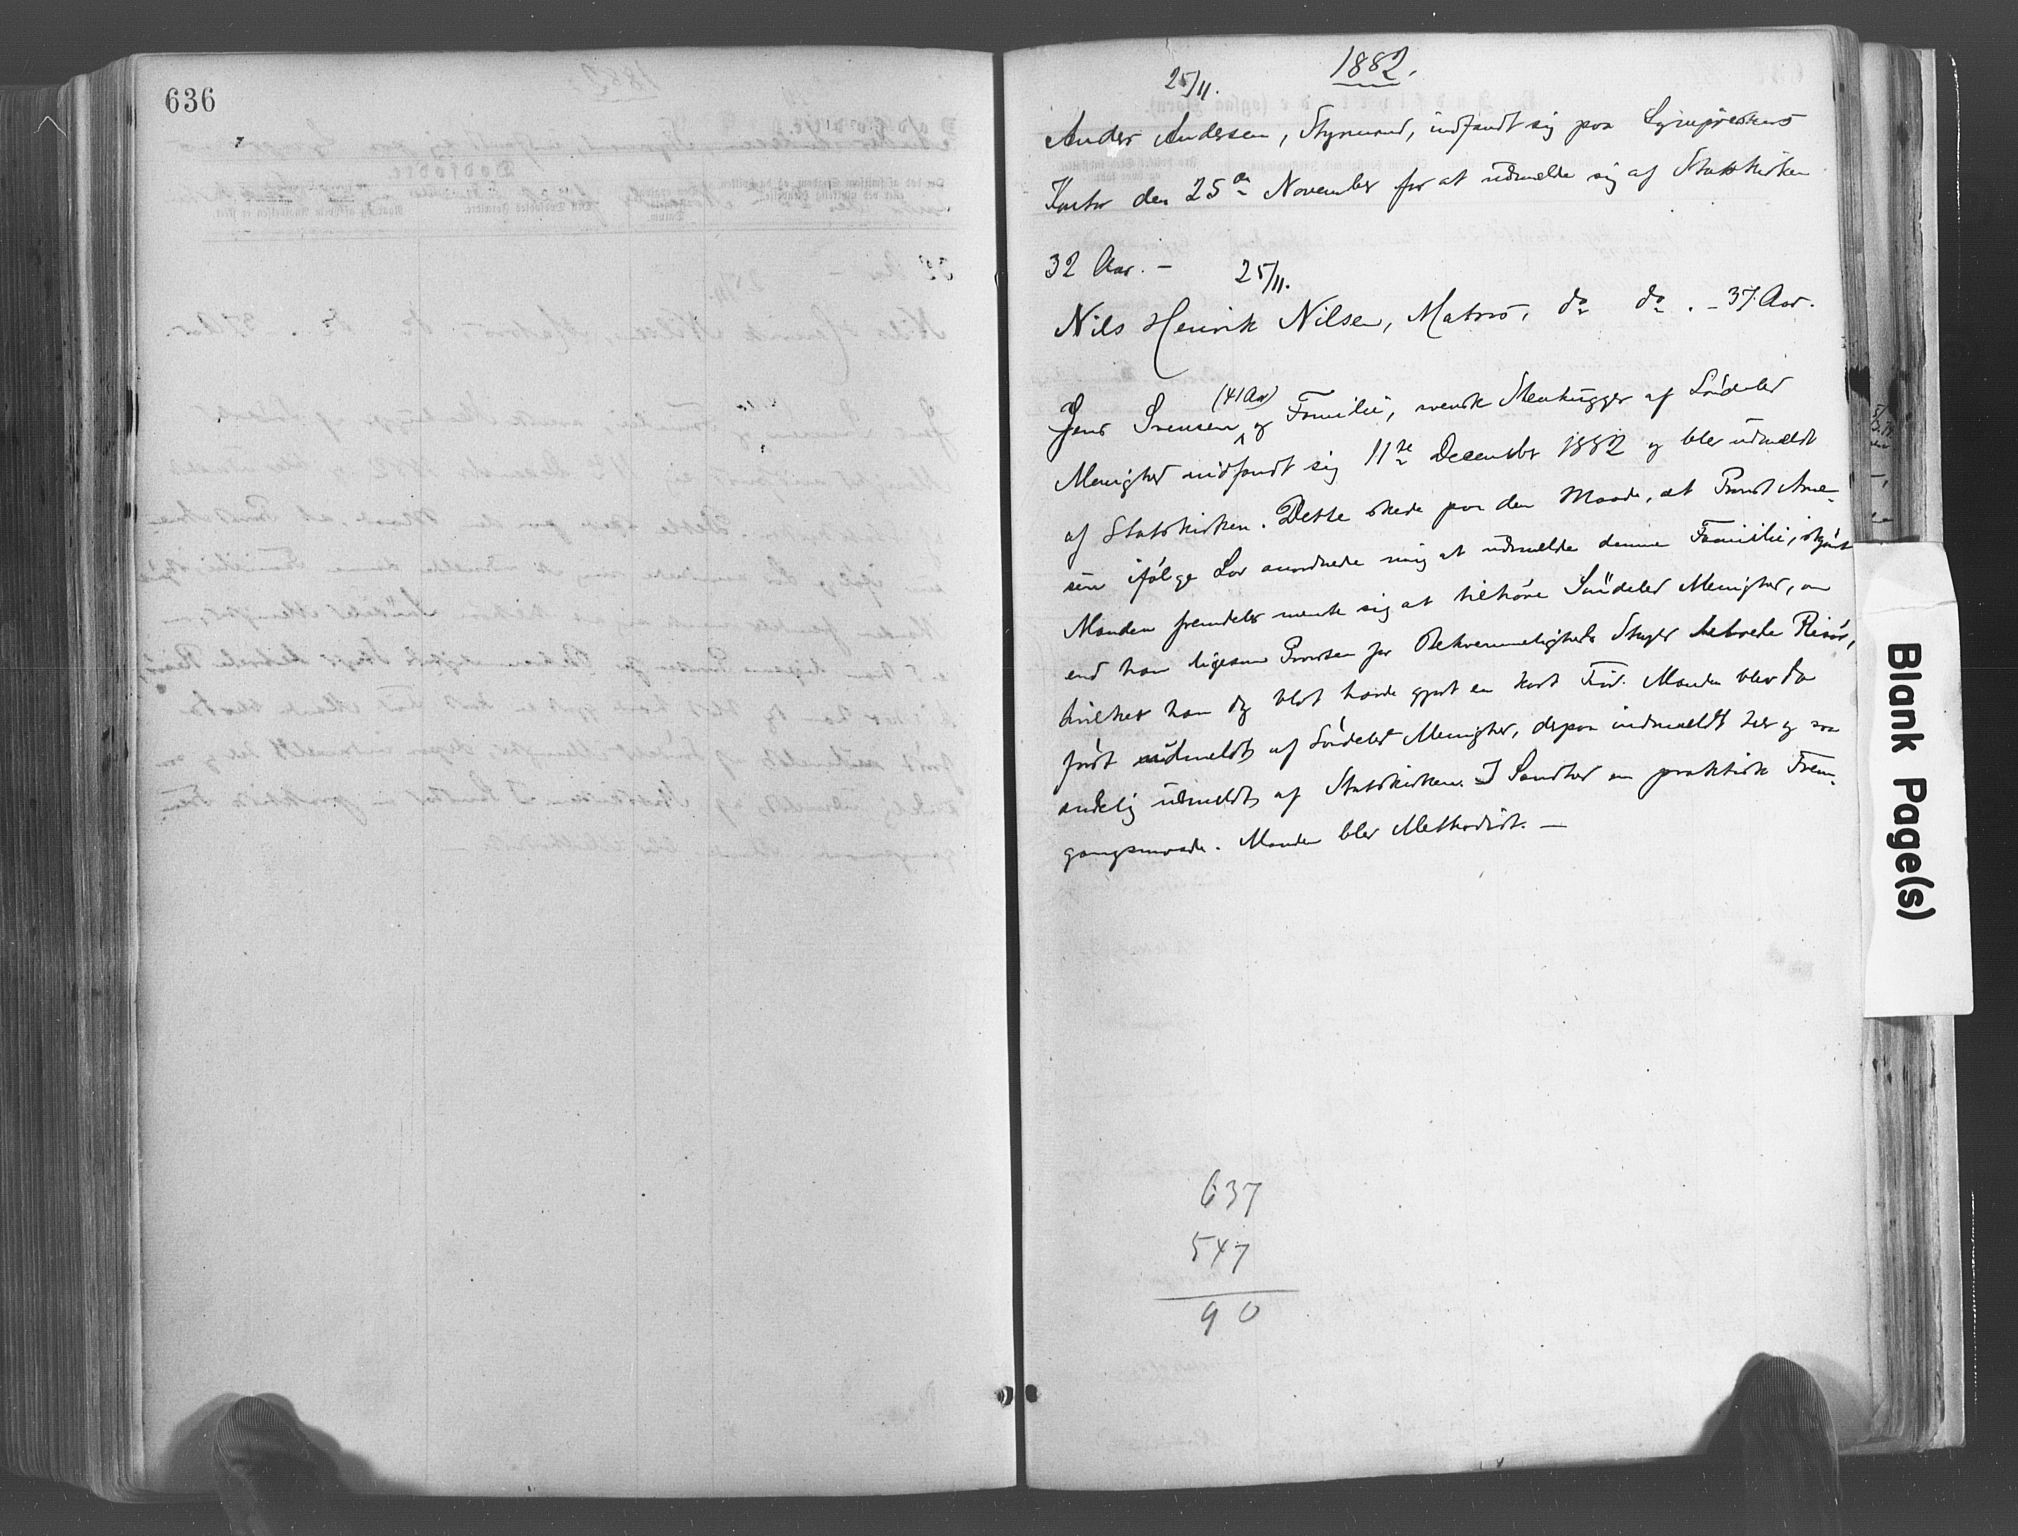 636
1882.
25/11.
Anders Andersen, Styrmand, indfandt sig paa Sognepræstens
Kontor den 25de November for at udmelde sig af Statskirken
32 Aar. —
25/11.
Nils Henrik Nilsen, Matros, do do. — 37 Aar.
(41 Aar)
Jens Svensen og Familie, svensk Stenhugger af Söndeled
Menighed indfandt sig 11te December 1882 og blev udmeldt
af Statskirken. Dette skede paa den Maade, at Provst Arne-
sen ifölge Lov anordnede mig at udmelde denne Familie, skjönt
Manden fremdeles mente sig at tilhöre Söndeled Menighed, om
end han ligesom Provsten for Bekvemmeligheds Skyld betraadte Risör,
hvilket han dog blot havde gjort en kort Tid. Manden blev da
först udmeldt af Söndeled Menighed, derpaa indmeldt her og saa
endelig udmeldt af Statskirken. I Sandhed en praktisk Frem-
gangsmaade. Manden blev Methodist. —
637
547
90
Blank Page(s)